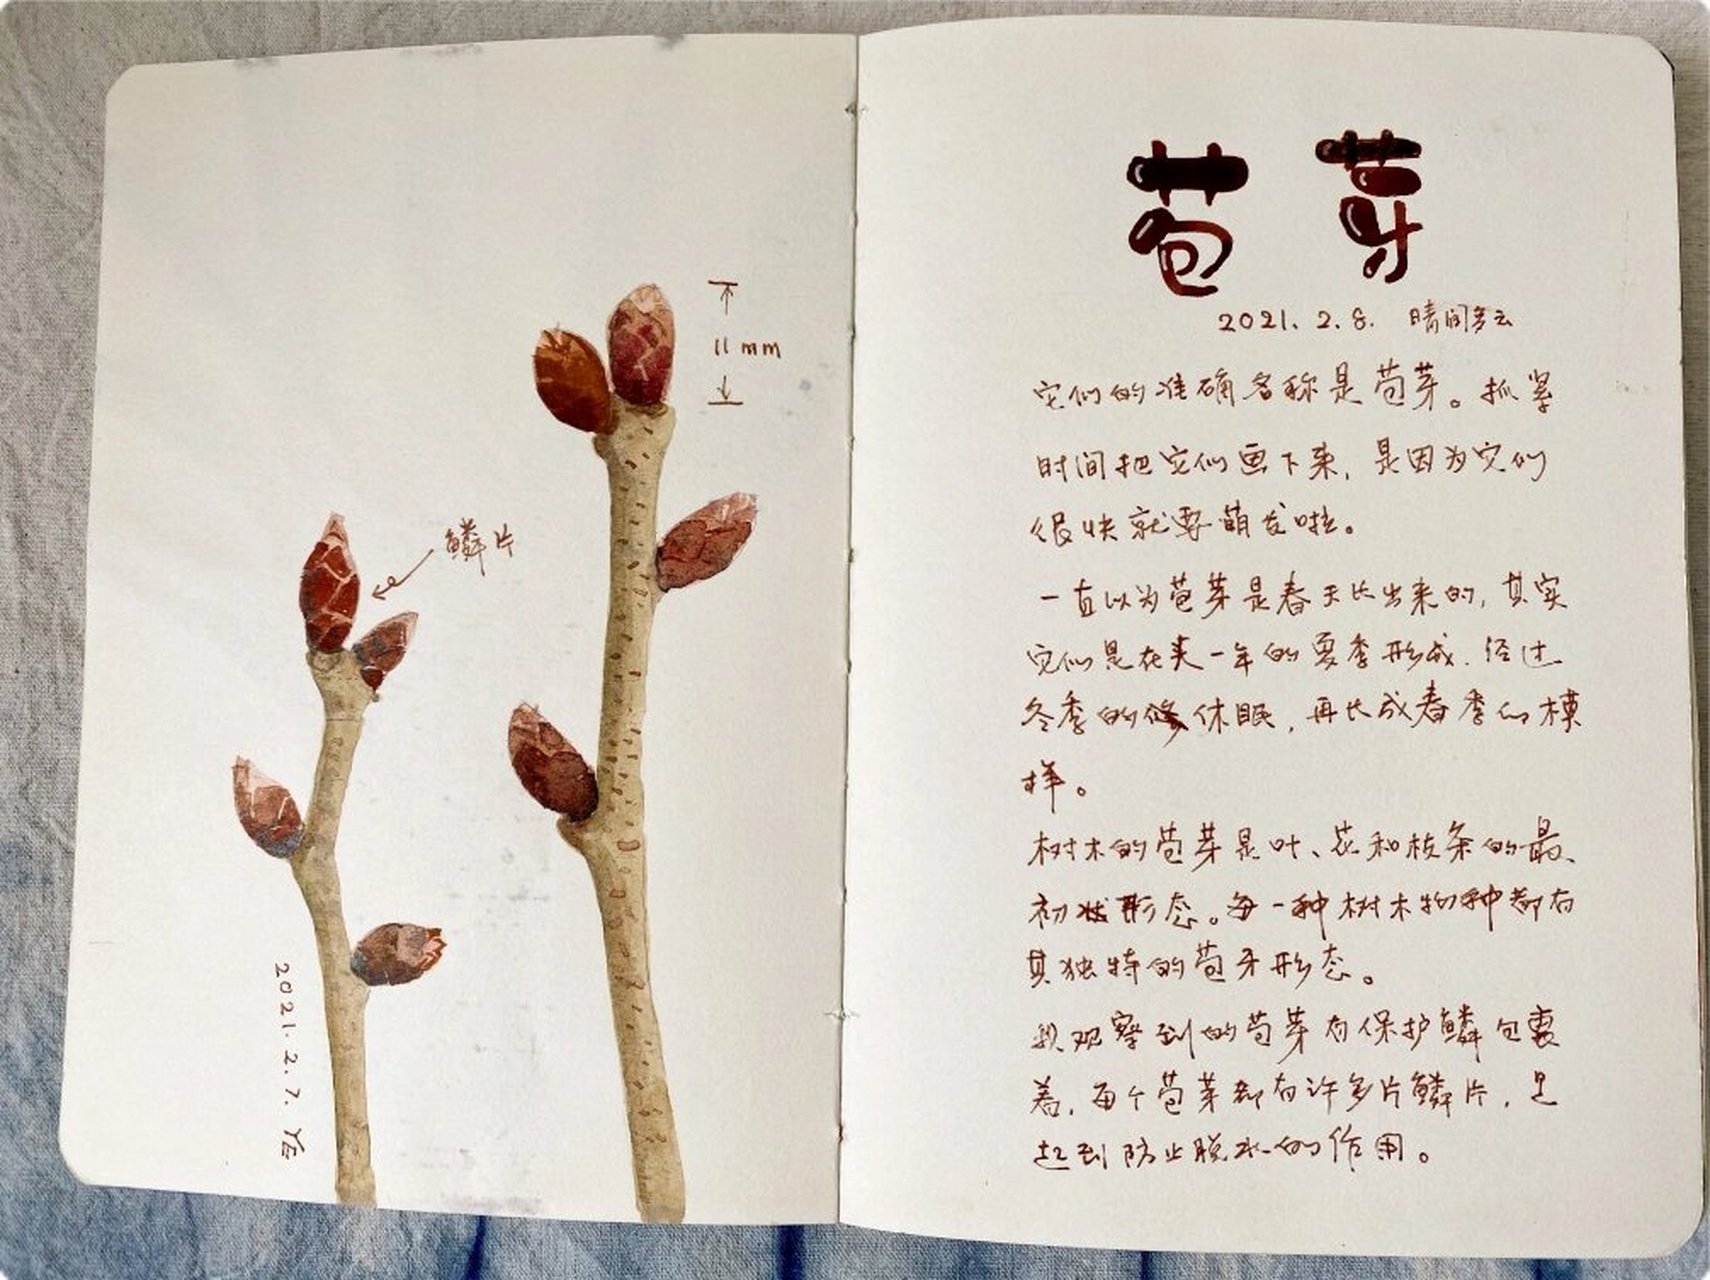 11 mm
鳞片
2021.2.7. YE
苞芽
2021.2.8. 晴间多云
它们的准确名称是苞芽。抓紧
时间把它们画下来,是因为它们
很快就要萌发啦。
一直以为苞芽是春天长出来的,其实
它们是在头一年的夏季形成.经过
冬季的休眠,再长成春季的模
样。
树木的苞芽是叶、花和枝条的最
初状形态。每一种树木物种都有
其独特的苞牙形态。
我观察到的苞芽有保护鳞包裹
着,每个苞芽都有许多片鳞片,是
起到防止脱水的作用。